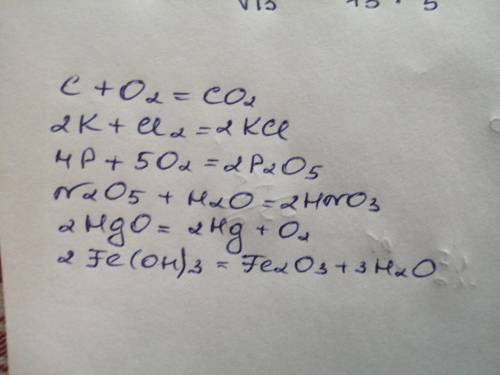 C + O₂ = CO₂
2K + Cl₂ = 2KCl
4P + 5O₂ = 2P₂O₅
N₂O₅ + H₂O = 2HNO₃
2HgO = 2Hg + O₂
2Fe(OH)₃ = Fe₂O₃ + 3H₂O